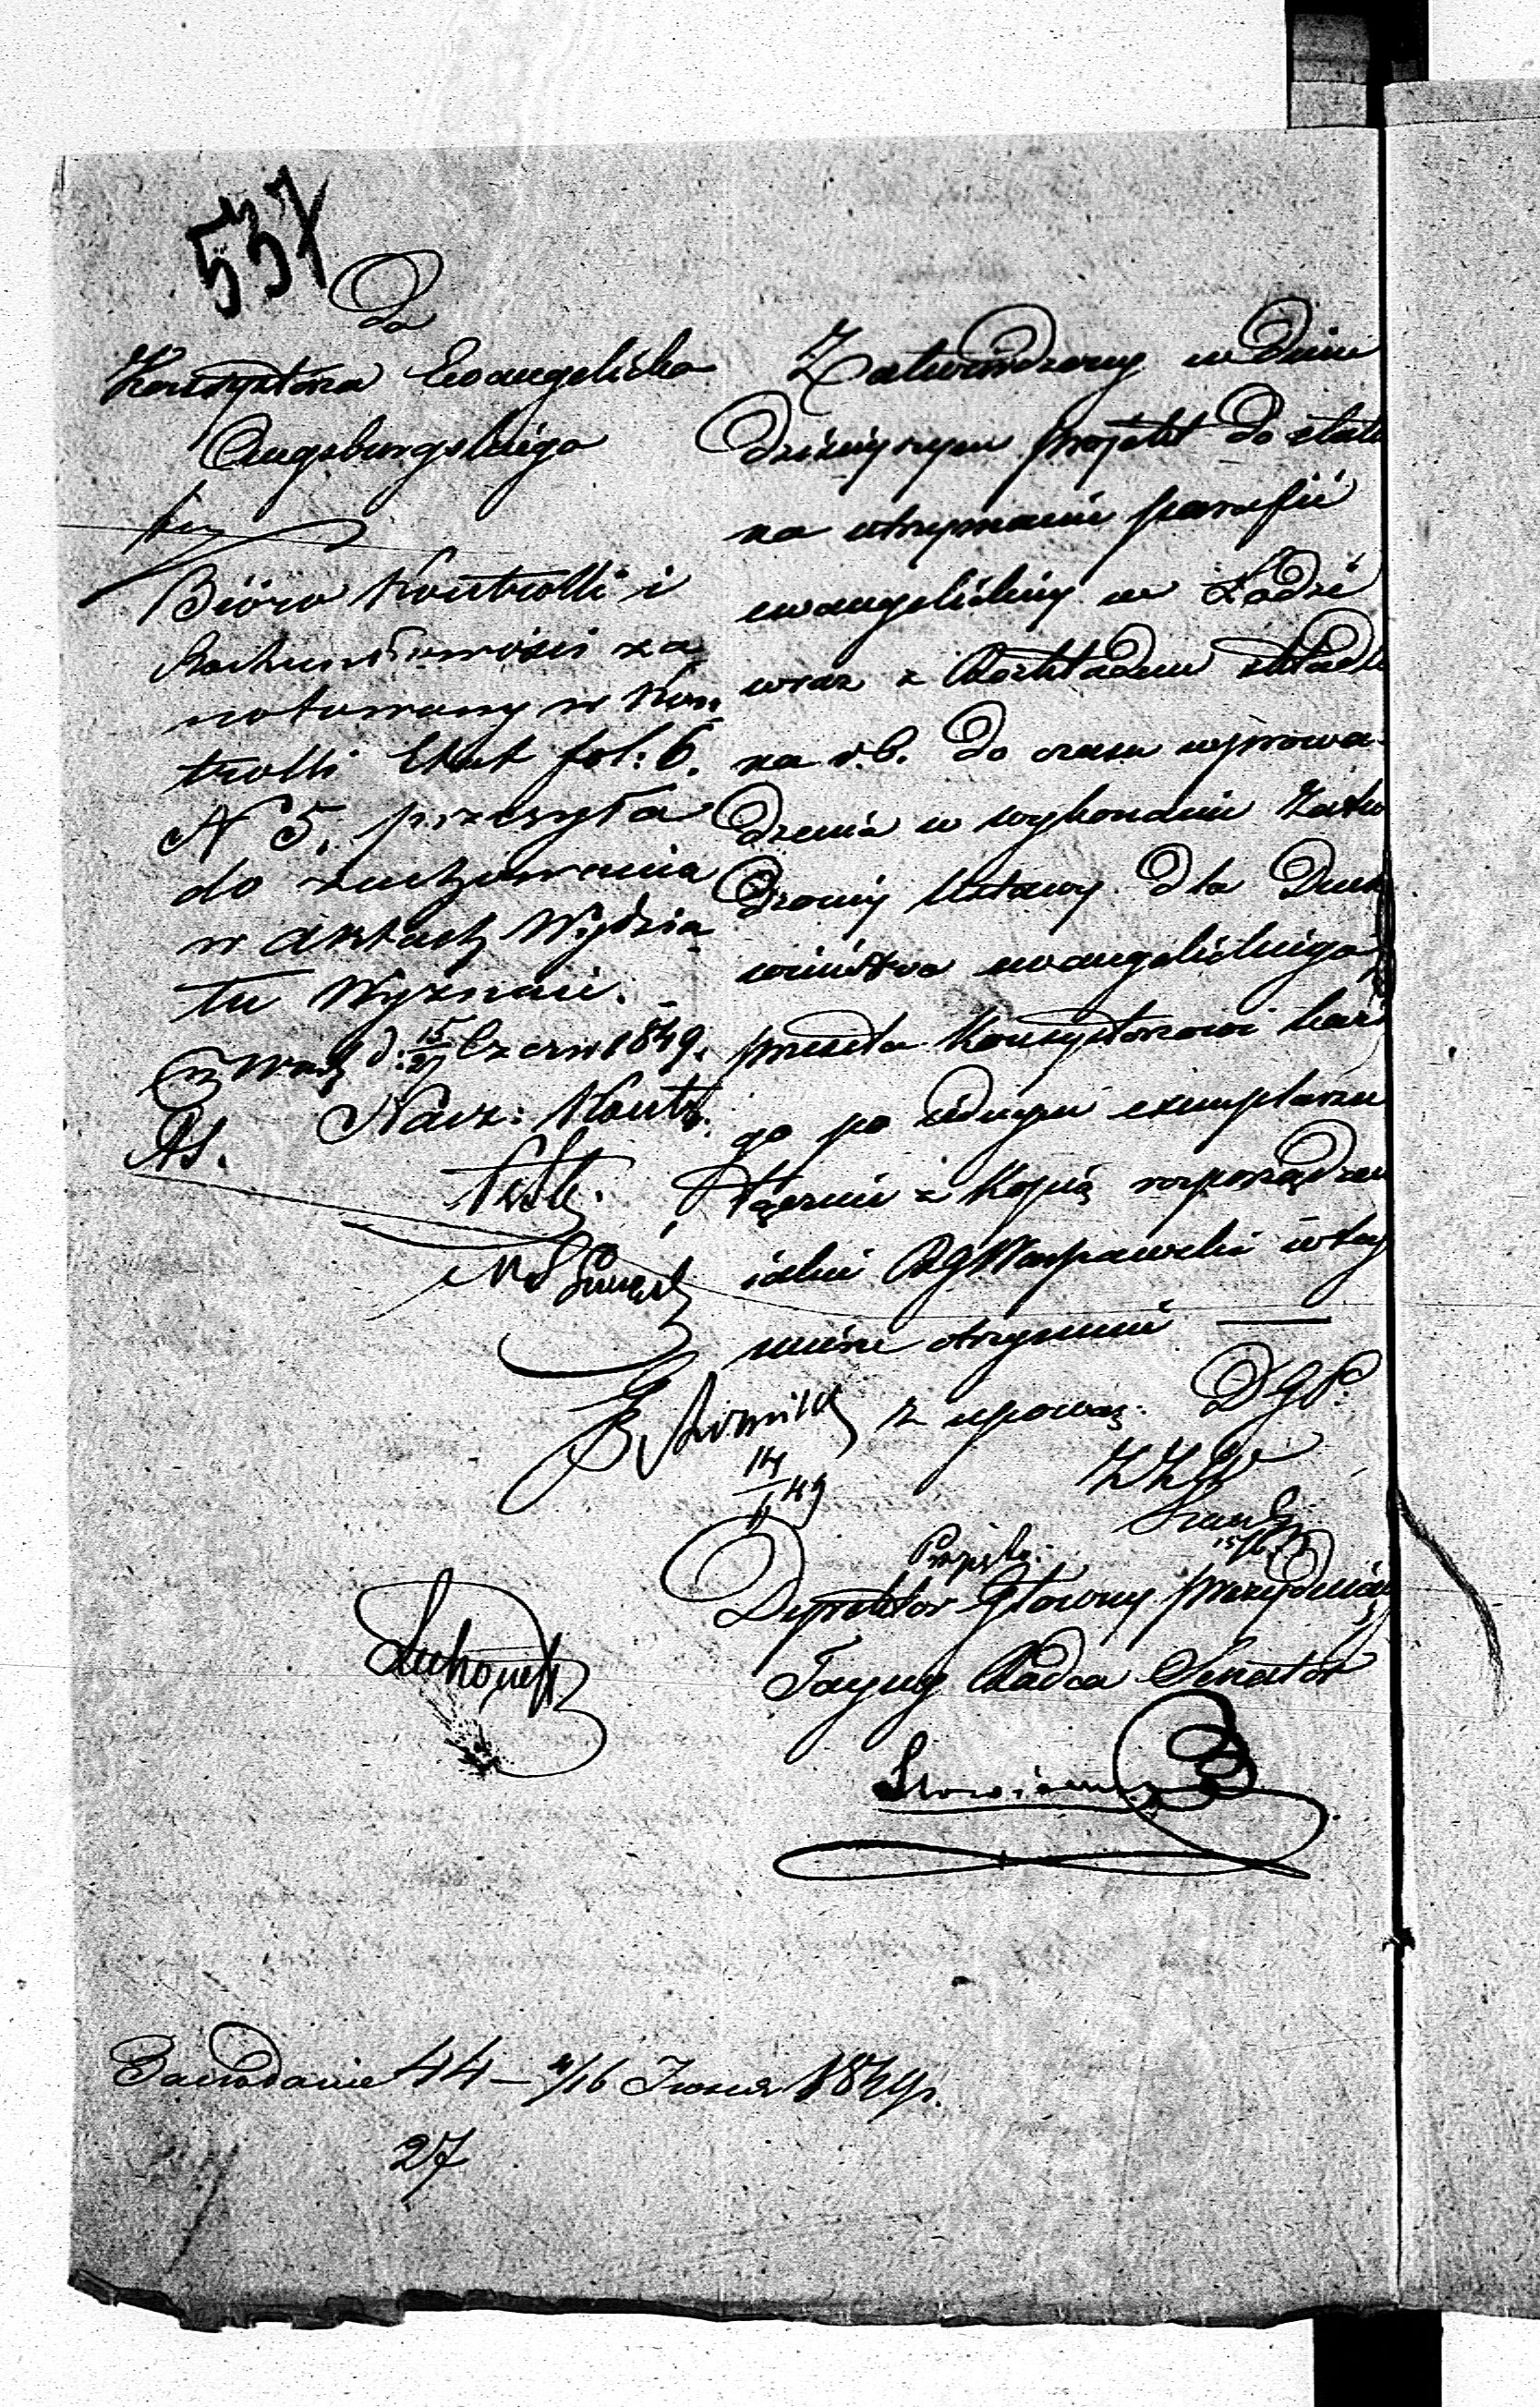 537
Do
Konsystorza Ewangelicko
Augsburgskiego
Bióro Kontrolli i
Rachunkowości za
notowany w Kon
trolli Etat fol: 6.
N 5, przesyła
do zachowania
w aktach Wydzia
łu Wyznań. _
w Warsz d: 15/27 Czerw 1849.
Nacz: Kontr.
Zatwierdzony w dniu
dzisiejszym projekt do etatu
na utrzymanie parafii
ewangelickiej w Łodzi
wraz z Rozkładem składki
na r.b. do czasu wprowa
dzenia w wykonanie Zatw
dzonej Ustawy dla Duch
wieństwa ewangelickiego
przesyła Konsystorzowi każ
go po jednym exemplarzu
łącznie z kopią rozporządzen
jakie RGWarszawski w tej
mierze otrzymuje
z upoważ: DGP.
14/6 49
15/6
Podpis:
Dyrektor Główny prezydujący
Tajny Radca Senator
44 – 4/16 1849 r.
27